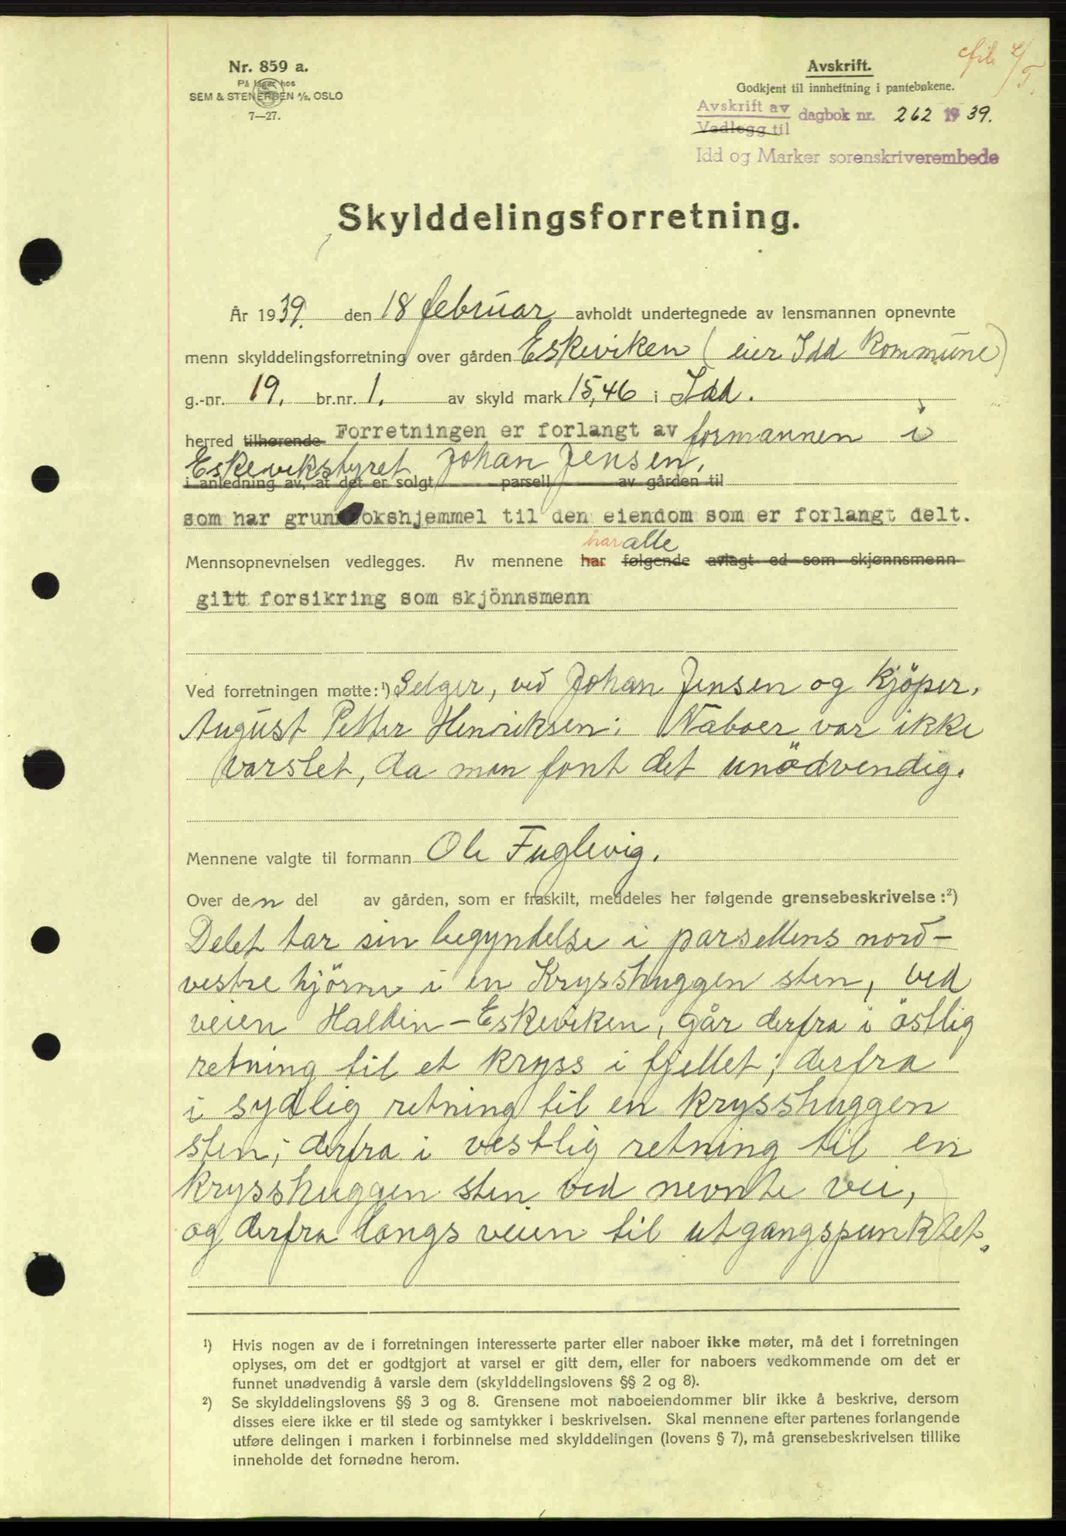 Nr. 859 a.
På lager hos
SEM & STENERSEN A/S, OSLO
7—27.
Avskrift.
Godkjent til innheftning i pantebøkene.
Avskrift av
Vedlegg til
dagbok nr. 262 1939.
Idd og Marker sorenskriverembede
Skylddelingsforretning.
År 1939. den 18 februar avholdt undertegnede av lensmannen opnevnte
menn skylddelingsforretning over gården Eskeviken (eier Idd Kommune)
g.-nr. 19. br.nr. 1. av skyld mark 15,46 i Idd.
herred tilhørende Forretningen er forlangt av formannen i
Eskevikstyret Johan Jensen,
i anledning av, at det er solgt parsell av gården til
som har grunnbokshjemmel til den eiendom som er forlangt delt.
har alle
Mennsopnevnelsen vedlegges. Av mennene har følgende avlagt ed som skjønnsmenn
gitt forsikring som skjönnsmenn
Ved forretningen møtte: ¹) Selger, ved Johan Jensen og Kjöper,
August Petter Henriksen; Naboer var ikke
varslet, da man fant det unödvendig.
Mennene valgte til formann Ole Fuglevig.
Over den del av gården, som er fraskilt, meddeles her følgende grensebeskrivelse: ²)
Delet tar sin begyndelse i parsellens nord-
vestre hjörne i en Krysshuggen sten, ved
veien Halden - Eskeviken, går derfra i östlig
retning til et kryss i fjellet; derfra
i sydlig retning til en krysshuggen
sten; derfra i vestlig retning til en
krysshuggen sten ved nevnte vei,
og derfra langs veien til utgangspunktet.
¹) Hvis nogen av de i forretningen interesserte parter eller naboer ikke møter, må det i forretningen
oplyses, om det er godtgjort at varsel er gitt dem, eller for naboers vedkommende om det er
funnet unødvendig å varsle dem (skylddelingslovens §§ 2 og 8).
²) Se skylddelingslovens §§ 3 og 8. Grensene mot naboeiendommer blir ikke å beskrive, dersom
disses eiere ikke er til stede og samtykker i beskrivelsen. Skal mennene efter partenes forlangende
utføre delingen i marken i forbinnelse med skylddelingen (lovens § 7), må grensebeskrivelsen tillike
inneholde det fornødne herom.